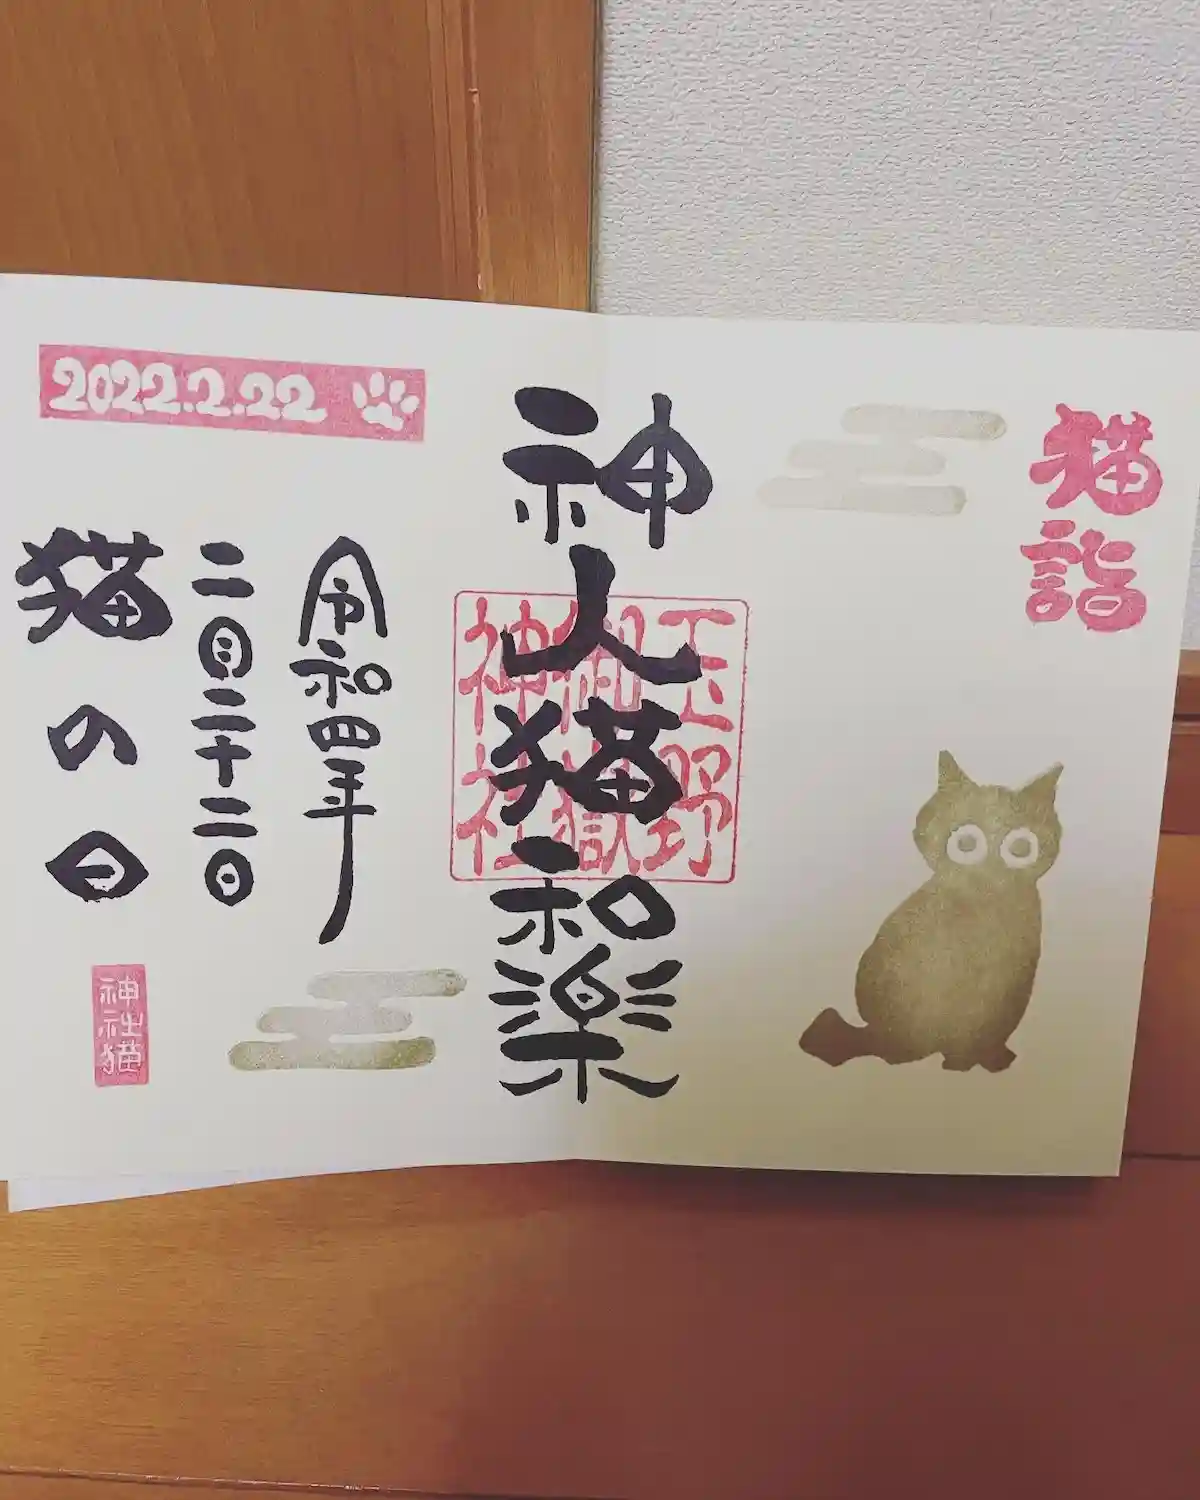 猫詣
神人猫和楽
玉野
御嶽
神社
令和四年
二月二十二日
猫の日
2022.2.22
神社猫